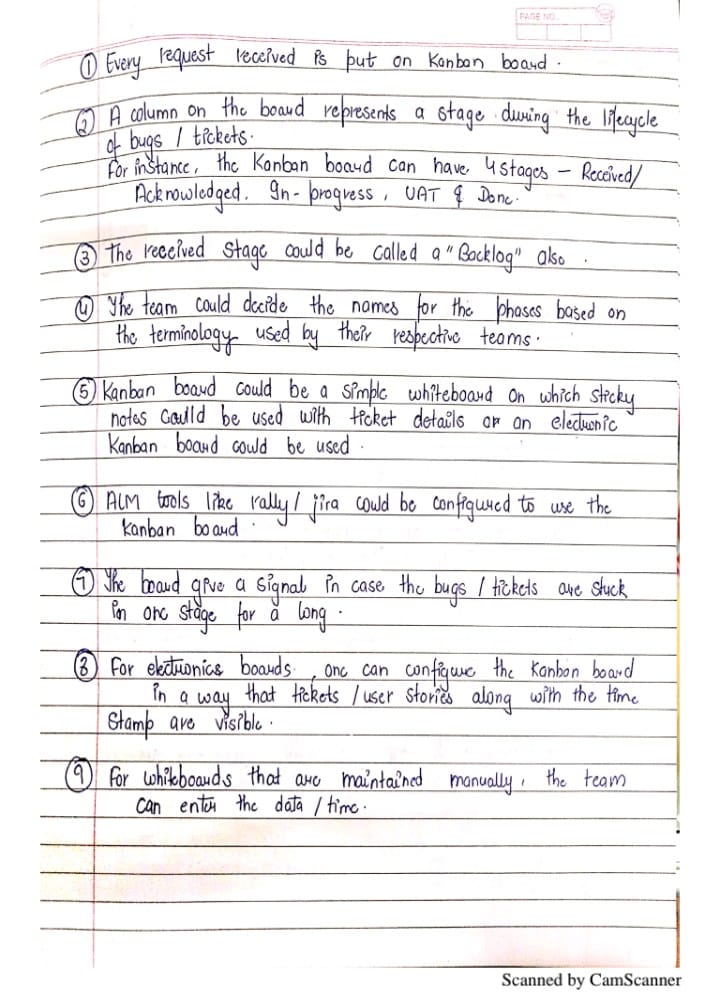 PAGE NO.
① Every request received is put on Kanban board.
② A column on the board represents a stage during the lifecycle
of bugs / tickets.
For instance, the Kanban board can have 4 stages – Received/
Acknowledged. In-progress, UAT & Done.
③ The received stage could be called a "Backlog" also.
④ The team could decide the names for the phases based on
the terminology used by their respective teams.
⑤ Kanban board could be a simple whiteboard on which sticky
notes could be used with ticket details or an electronic
Kanban board could be used.
⑥ ALM tools like rally / jira could be configured to use the
Kanban board.
⑦ The board give a signal in case the bugs / tickets are stuck
in one stage for a long.
⑧ For electronics boards, one can configure the Kanban board
in a way that tickets / user stories along with the time
stamp are visible.
⑨ For whiteboards that are maintained manually, the team
can enter the data / time.
Scanned by CamScanner